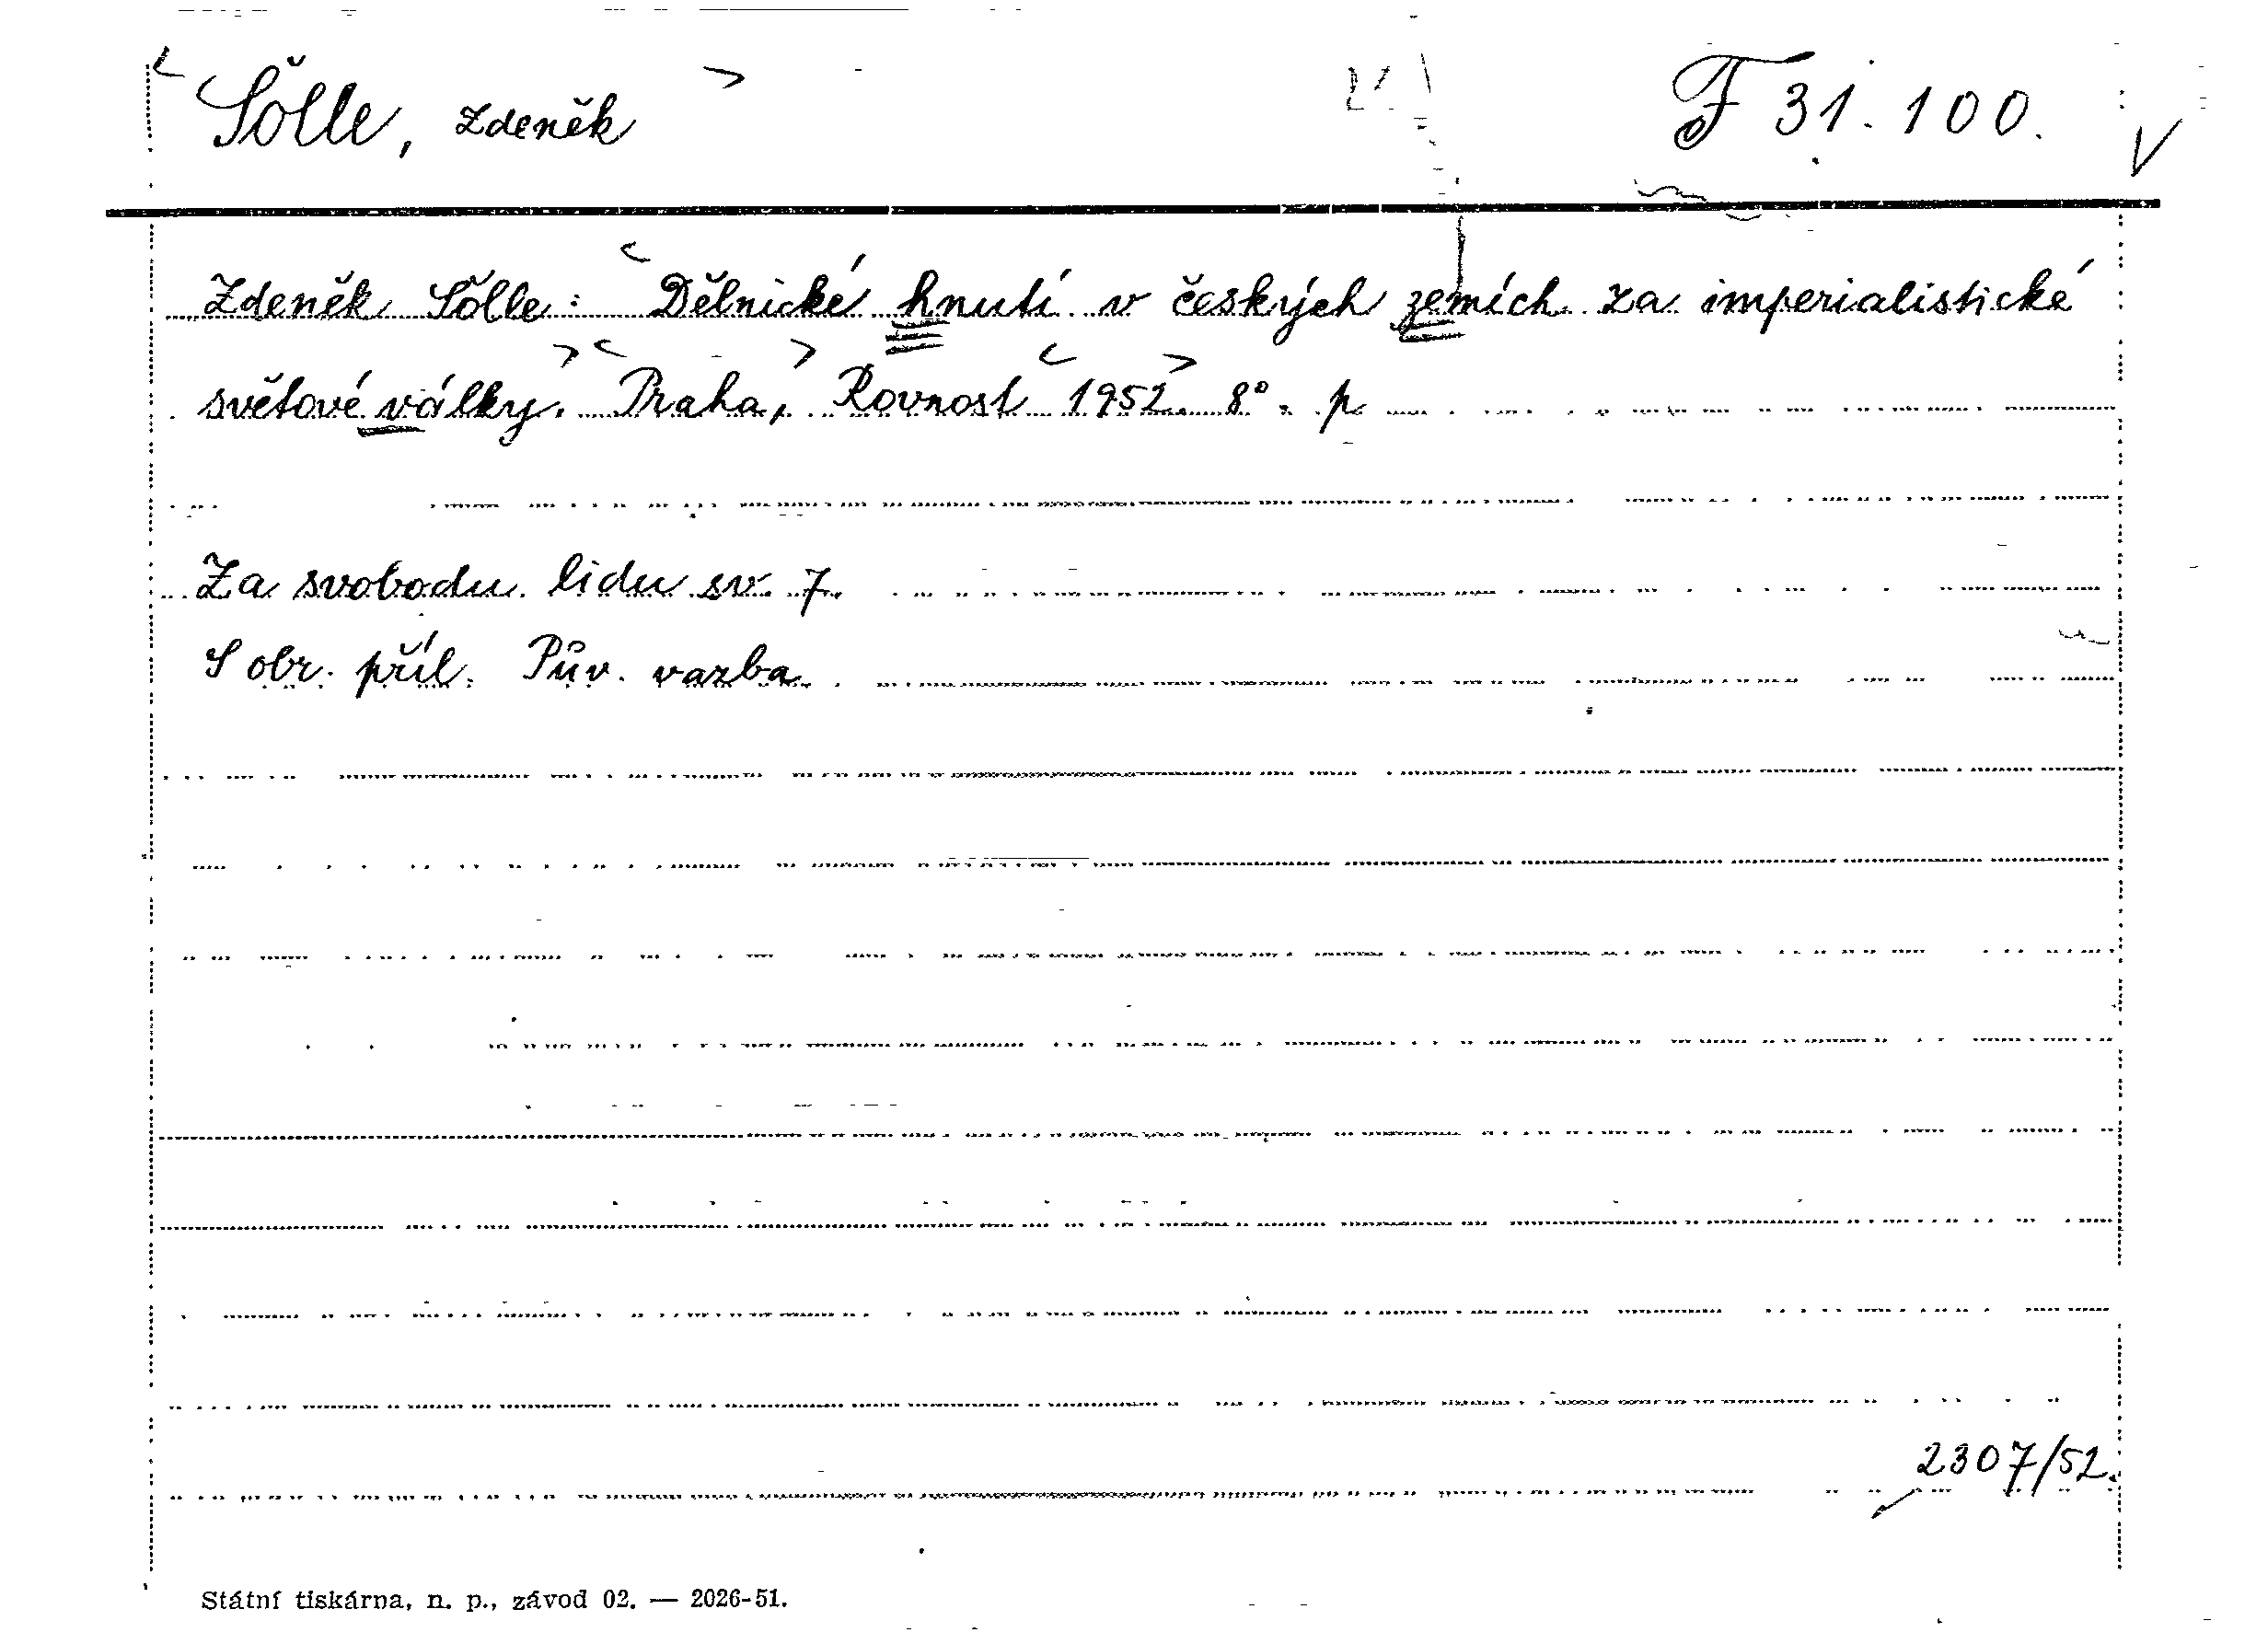 Šolle, Zdeněk
F 31.100.
Zdeněk Šolle: Dělnické hnutí v českých zemích za imperialistické
světové války. Praha, Rovnost 1952. 8°. p
Za svobodu lidu sv. 7.
S obr. příl. Pův. vazba.
2307/52.
Státní tiskárna, n. p., závod 02. — 2026-51.